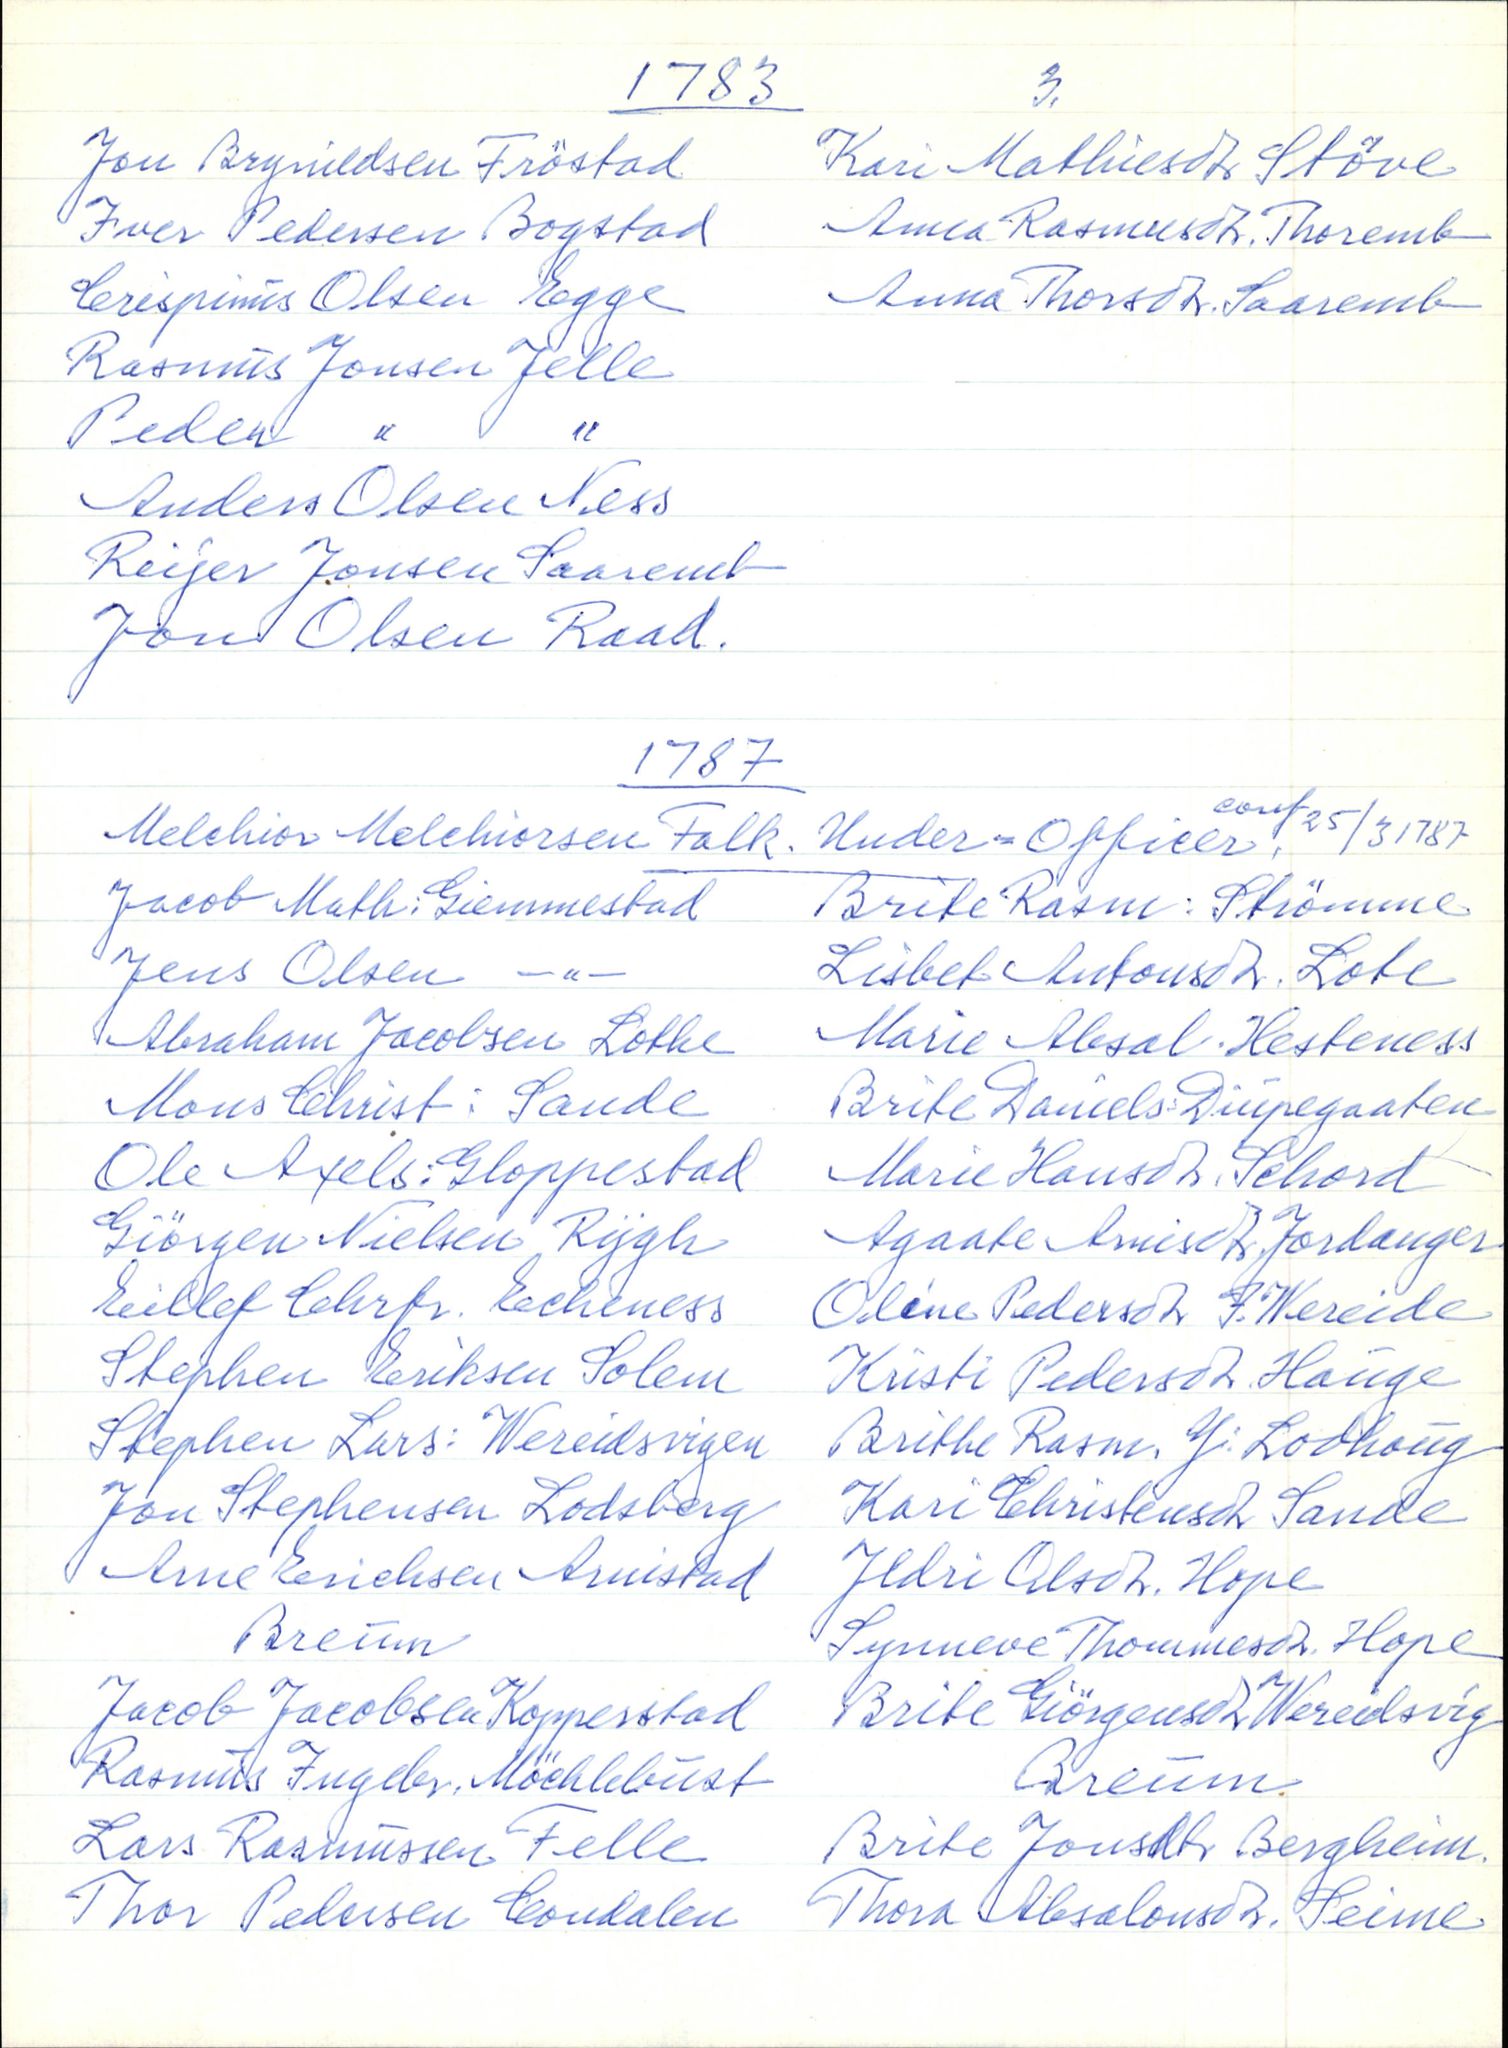 1783 3.
Jon Brynildsen Fröstad
Iver Pedersen Bogstad
Crispinus Olsen Egge
Rasmus Jonsen Jelle
Peder " "
Anders Olsen Ness
Reijer Jonsen Saaremb
Jon Olsen Raad.
Kari Mathiesdtr Støve
Anna Rasmusdtr. Thoremb
Anna Thorsdtr. Saaremb
1787
Melchior Melchiorsen Falk. Under-Officer, conf 25/3 1787
Jacob Math: Giemmestad
Jens Olsen -"-
Abraham Jacobsen Lothe
Mons Christ: Sande
Ole Axels: Gloppestad
Giörgen Nielsen Rÿgh
Eillef Chrfr. Echeness
Stephen Eriksen Solem
Stephen Lars: Wereidsvigen
Jon Stephensen Lodsberg
Arne Erichsen Arnistad
Breum
Jacob Jacobsen Kopperstad
Rasmus Ingebr. Möchlebust
Lars Rasmussen Felle
Thor Pedersen Condalen
Brite Rasm: Strömme
Lisbet Antonsdtr. Lote
Marie Absal. Hesteness
Brite Daniels: Diupegaaten
Marie Hansdtr. Schord
Agaate Arnisdtr. Jordanger
Oline Pedersdtr F. Wereide
Kristi Pedersdtr. Hauge
Brithe Rasm. Y: Lodhoug
Kari Christensdtr Sande
Jldri Olsdtr. Hope
Synneve Thommesdtr. Hope
Brite Giörgensdtr Wereidsvig
Breum
Brite Jonsdtr Bergheim.
Thora Absalonsdtr. Seime